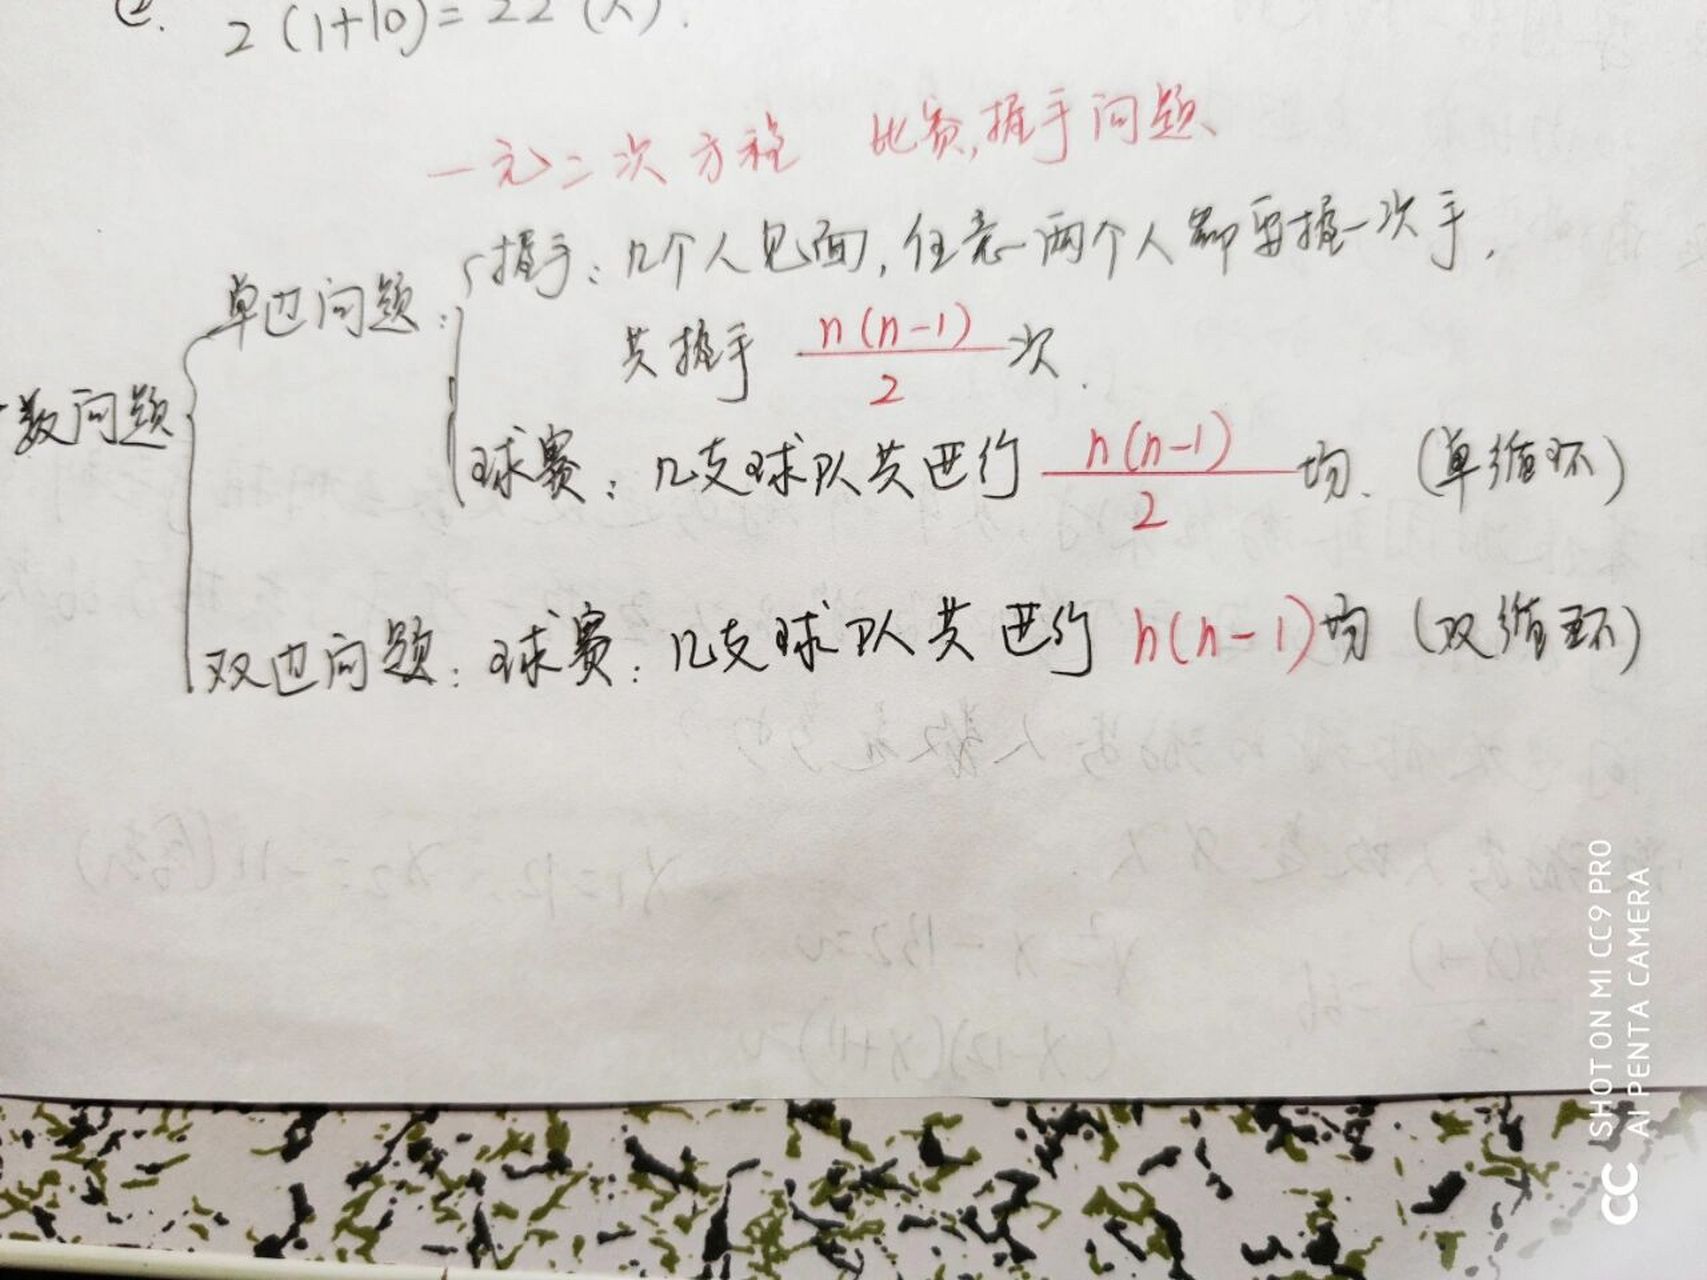 ②. 2(1+10)=22(人).
一元二次方程 比赛,握手问题
握手:几个人见面,任意两个人都要握一次手,
单边问题:
共握手 n(n-1)/2 次.
数问题
球赛:几支球队共进行 n(n-1)/2 场.(单循环)
双边问题:球赛:几支球队共进行 n(n-1)场(双循环)
SHOT ON MI CC9 PRO
AI PENTA CAMERA